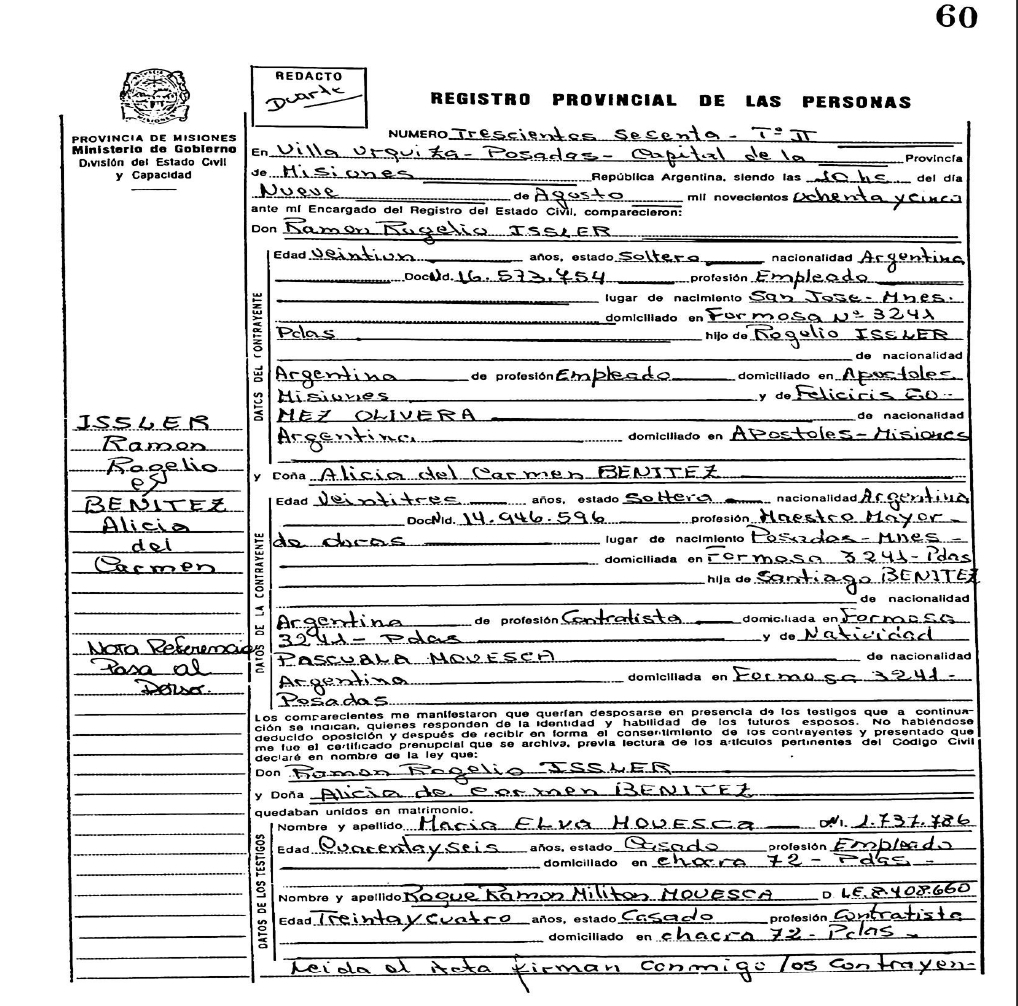 60
REDACTO
Duarte
REGISTRO PROVINCIAL DE LAS PERSONAS
PROVINCIA DE MISIONES
Ministerio de Gobierno
División del Estado Civil
y Capacidad
NUMERO Trescientos Secenta - Tº II
En Villa Urquiza - Posadas - Capital de la Provincia
de Misiones República Argentina, siendo las 10 hs del día
Nueve de Agosto mil novecientos Ochenta y cinco
ante mí Encargado del Registro del Estado Civil, comparecieron:
Don Ramon Rogelio ISSLER
DATOS DEL CONTRAYENTE
Edad Veintiun años, estado Soltero nacionalidad Argentina
Doc Nd. 16.573.754 profesión Empleado
lugar de nacimiento San Jose - Mnes.
domiciliado en Formosa Nº 3241
Pdas hijo de Rogelio ISSLER
de nacionalidad
Argentina de profesión Empleado domiciliado en Apostoles
Misiones y de Feliciris GO-
MEZ OLIVERA de nacionalidad
Argentina domiciliado en APostoles - Misiones
y Doña Alicia del Carmen BENITEZ
DATOS DE LA CONTRAYENTE
Edad Veintitres años, estado Soltera nacionalidad Argentina
Doc Nd. 14.946.596 profesión Maestro Mayor -
de obras lugar de nacimiento Posadas - Mnes -
domiciliada en Formosa 3241 - Pdas
hija de Santiago BENITEZ
de nacionalidad
Argentina de profesión Contratista domiciliada en Formosa
3241 - Pdas y de Natividad
PASCUALA MOUESCA de nacionalidad
Argentina domiciliada en Formosa 3241 -
Posadas
ISSLER
Ramon
Rogelio
c/
BENITEZ
Alicia
del
Carmen
Nota Referencia
Pasa al
Dorso.
Los comparecientes me manifestaron que querían desposarse en presencia de los testigos que a continua-
ción se indican, quienes responden de la identidad y habilidad de los futuros esposos. No habiéndose
deducido oposición y después de recibir en forma el consentimiento de los contrayentes y presentado que
me fue el certificado prenupcial que se archiva, previa lectura de los artículos pertinentes del Código Civil
declaré en nombre de la ley que:
Don Ramon Rogelio ISSLER
y Doña Alicia de Cormen BENITEZ
quedaban unidos en matrimonio.
DATOS DE LOS TESTIGOS
Nombre y apellido Maria ELVA MOUESCA 1.737.786
Edad Cuarenta y seis años, estado Casado profesión Empleado
domiciliado en chacra 72 - Pdas -
Nombre y apellido Roque Ramon Militon MOUESCA D LE.8.408.660
Edad Treinta y cuatro años, estado Casado profesión Contratista
domiciliado en chacra 72 - Pdas -
Leida el Acta firman conmigo los Contrayen-